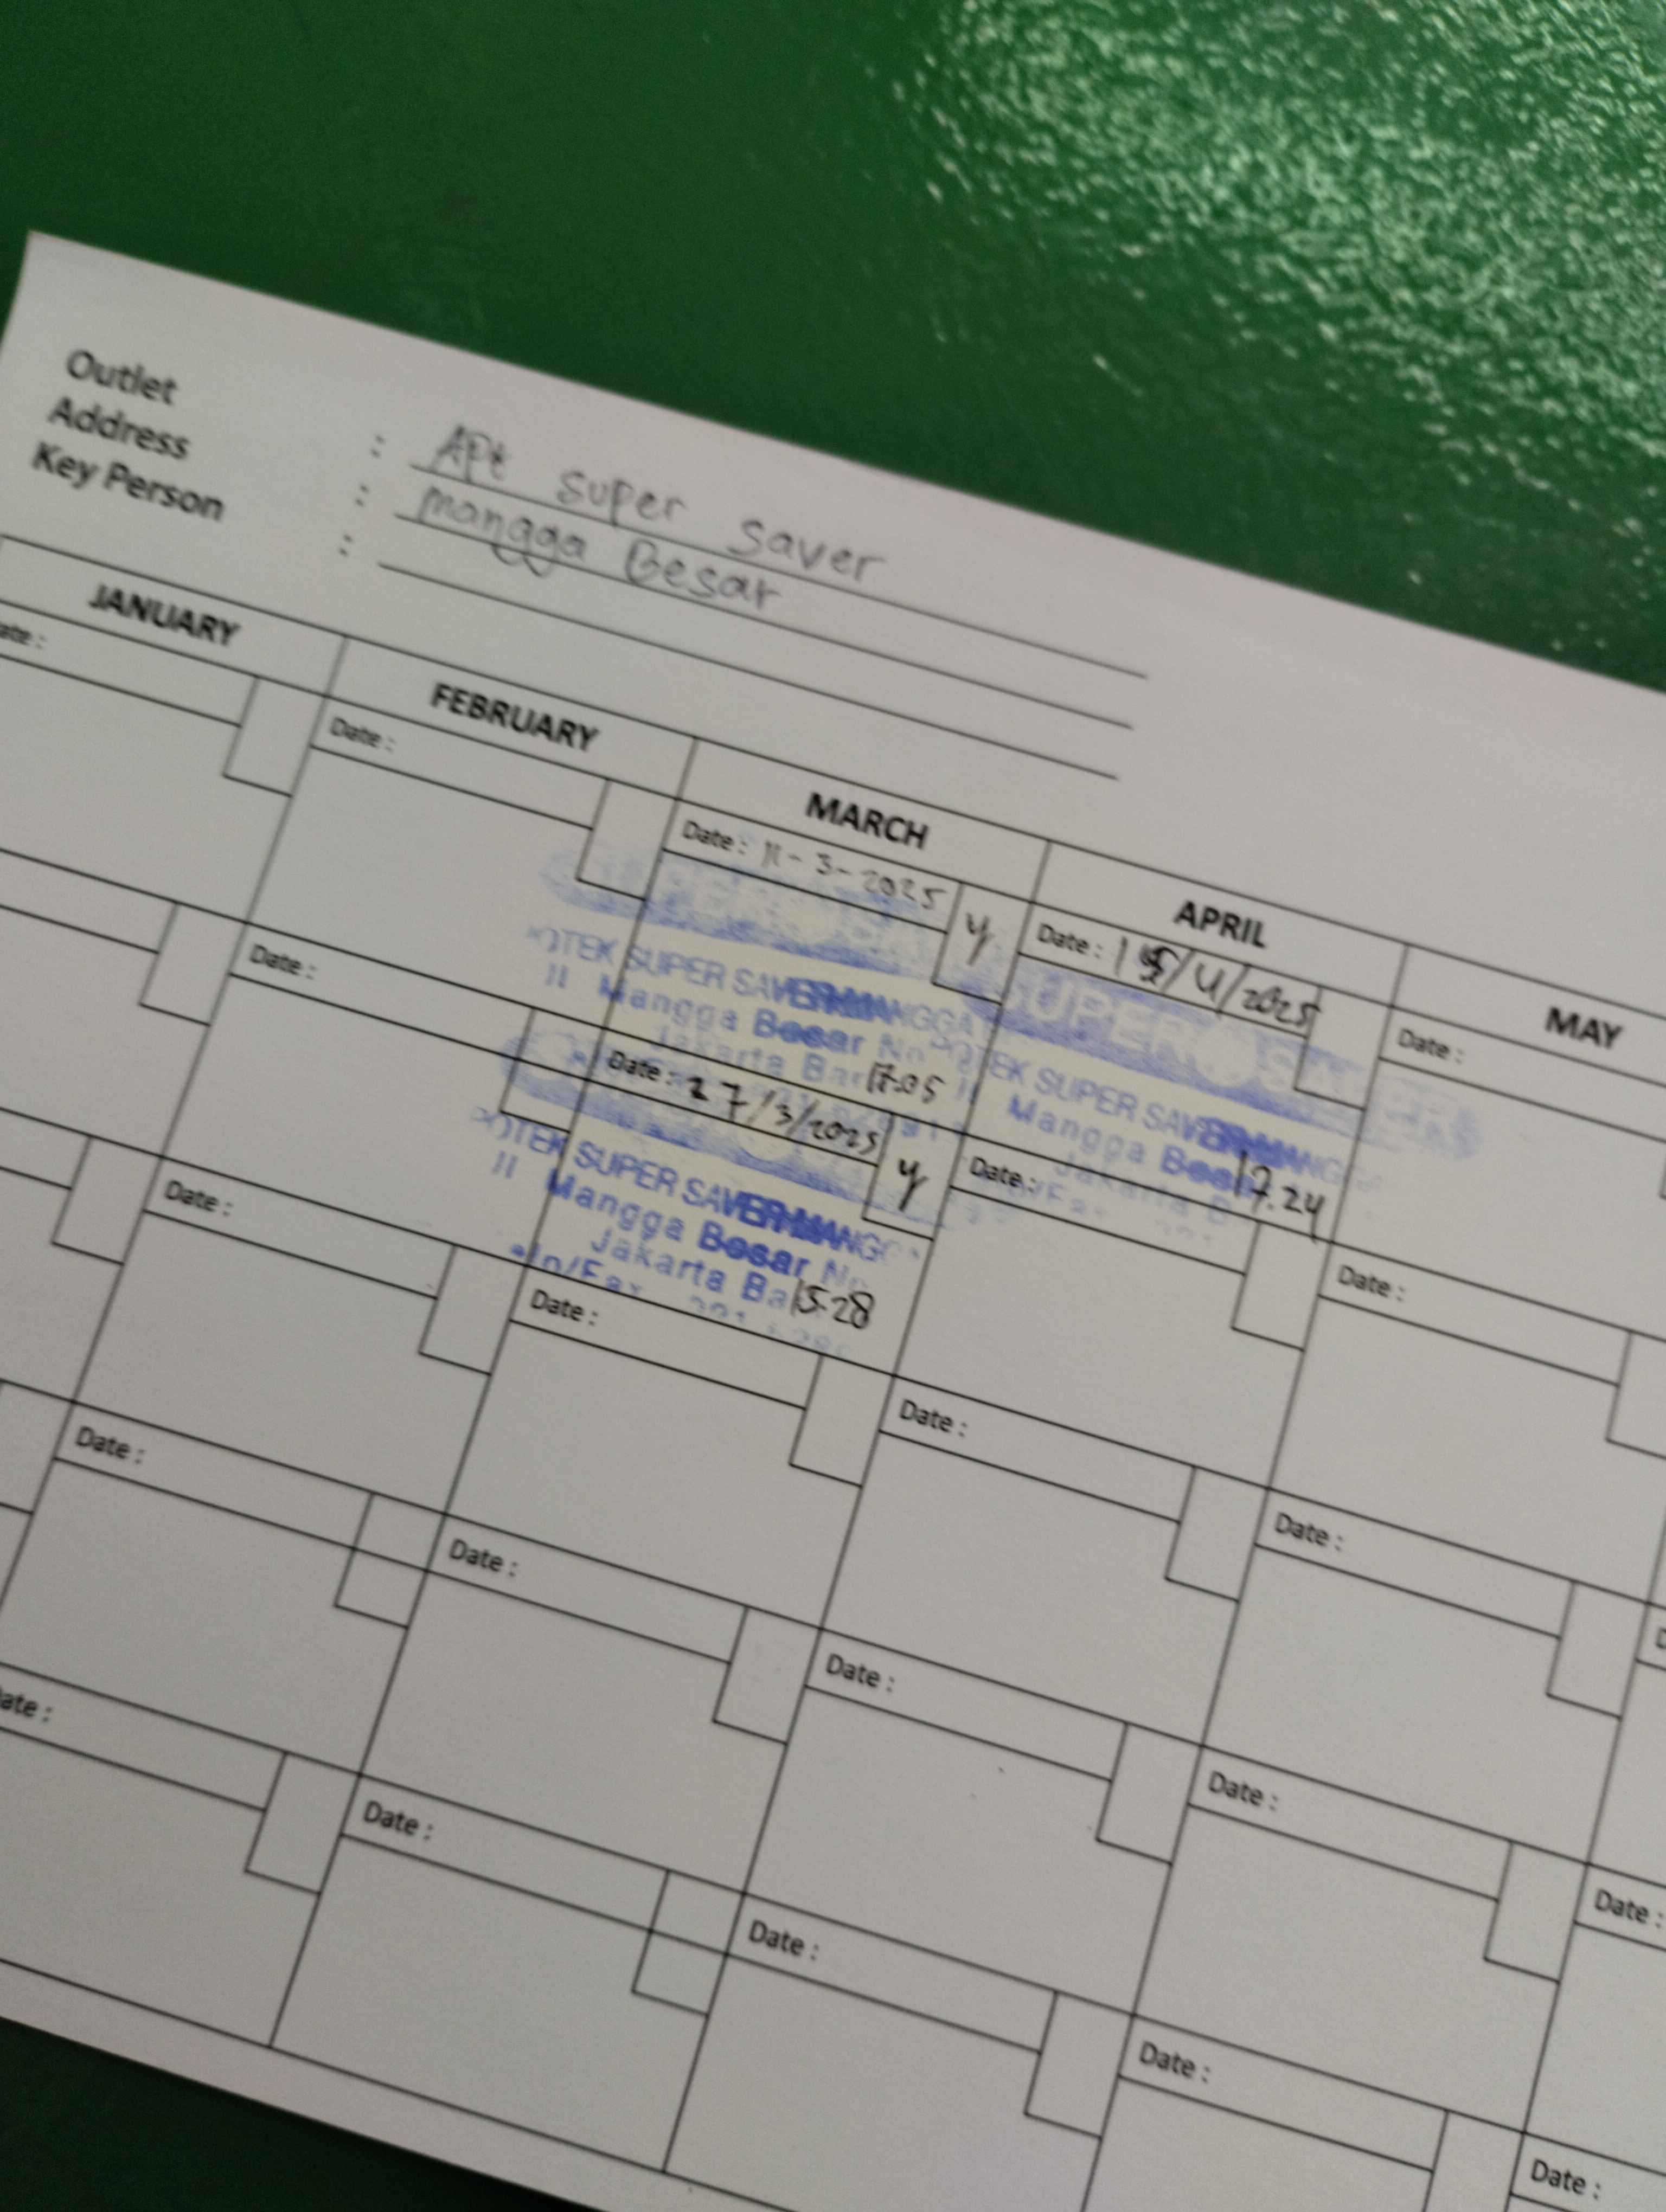 Outlet : Apt super saver
Address : Mangga Besar
Key Person :
JANUARY FEBRUARY MARCH APRIL MAY
ate :
Date :
Date : 11-3-2025 y
SUPER SAVER
OTEK SUPER SAVER MANGGA
Mangga Besar No
Jakarta Bar 17.05
Date : 15/4/2025
SUPER SAVER
OTEK SUPER SAVER MANGG
Mangga Besar 17.24
Jakarta B
Date :
Date :
Date : 27/3/2025 y
OTEK SUPER SAVER MANGG
Mangga Besar No
Jakarta Ba 15.28
elp/Fax
Date :
Date :
Date :
Date :
Date :
Date :
Date :
Date :
Date :
Date :
ate :
Date :
Date :
Date :
Date :
Date :